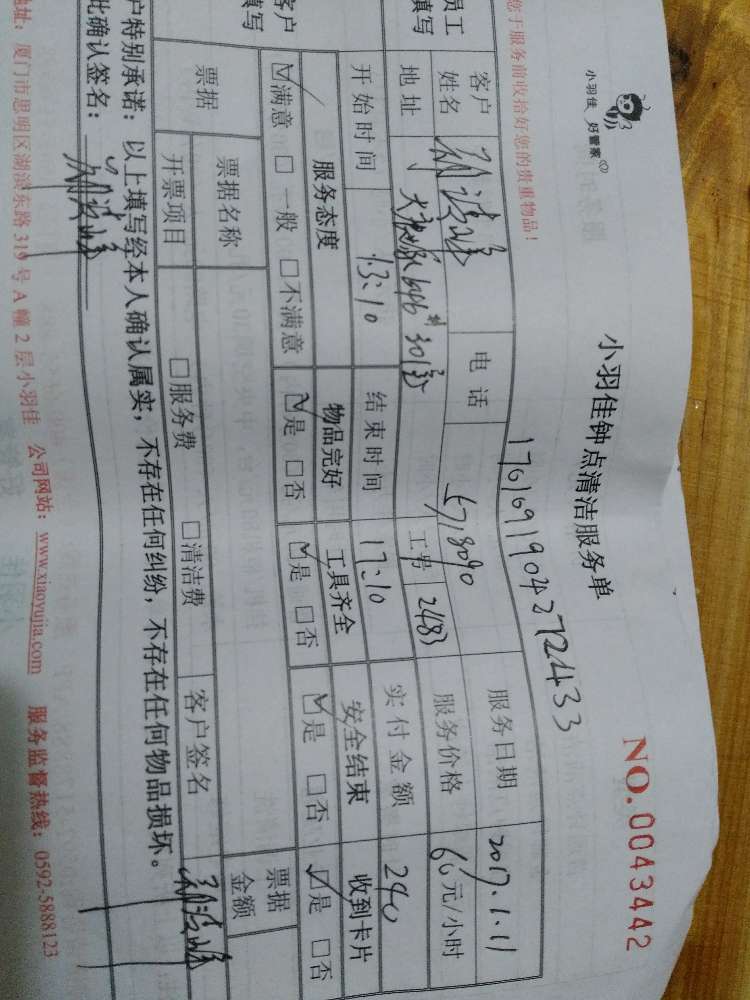 小羽佳 好管家
小羽佳钟点清洁服务单
NO.0043442
您于服务前收拾好您的贵重物品！
17010911904272433
员工填写
客户姓名
电话
服务日期 2017.1.11
地址 301室
工号 2483
服务价格 60元/小时
开始时间 13:10
结束时间 17:10
实付金额 240
客户填写
服务态度 物品完好 工具齐全 安全结束 收到卡片
☑满意 □一般 □不满意 ☑是 □否 ☑是 □否 ☑是 □否 ☑是 □否
票据
票据名称
票据金额
开票项目 □服务费 □清洁费 客户签名
户特别承诺：以上填写经本人确认属实，不存在任何纠纷，不存在任何物品损坏。
此确认签名：
地址：厦门市思明区湖滨东路319号A幢2层小羽佳 公司网站：www.xiaoyujia.com 服务监督热线：0592-5888123